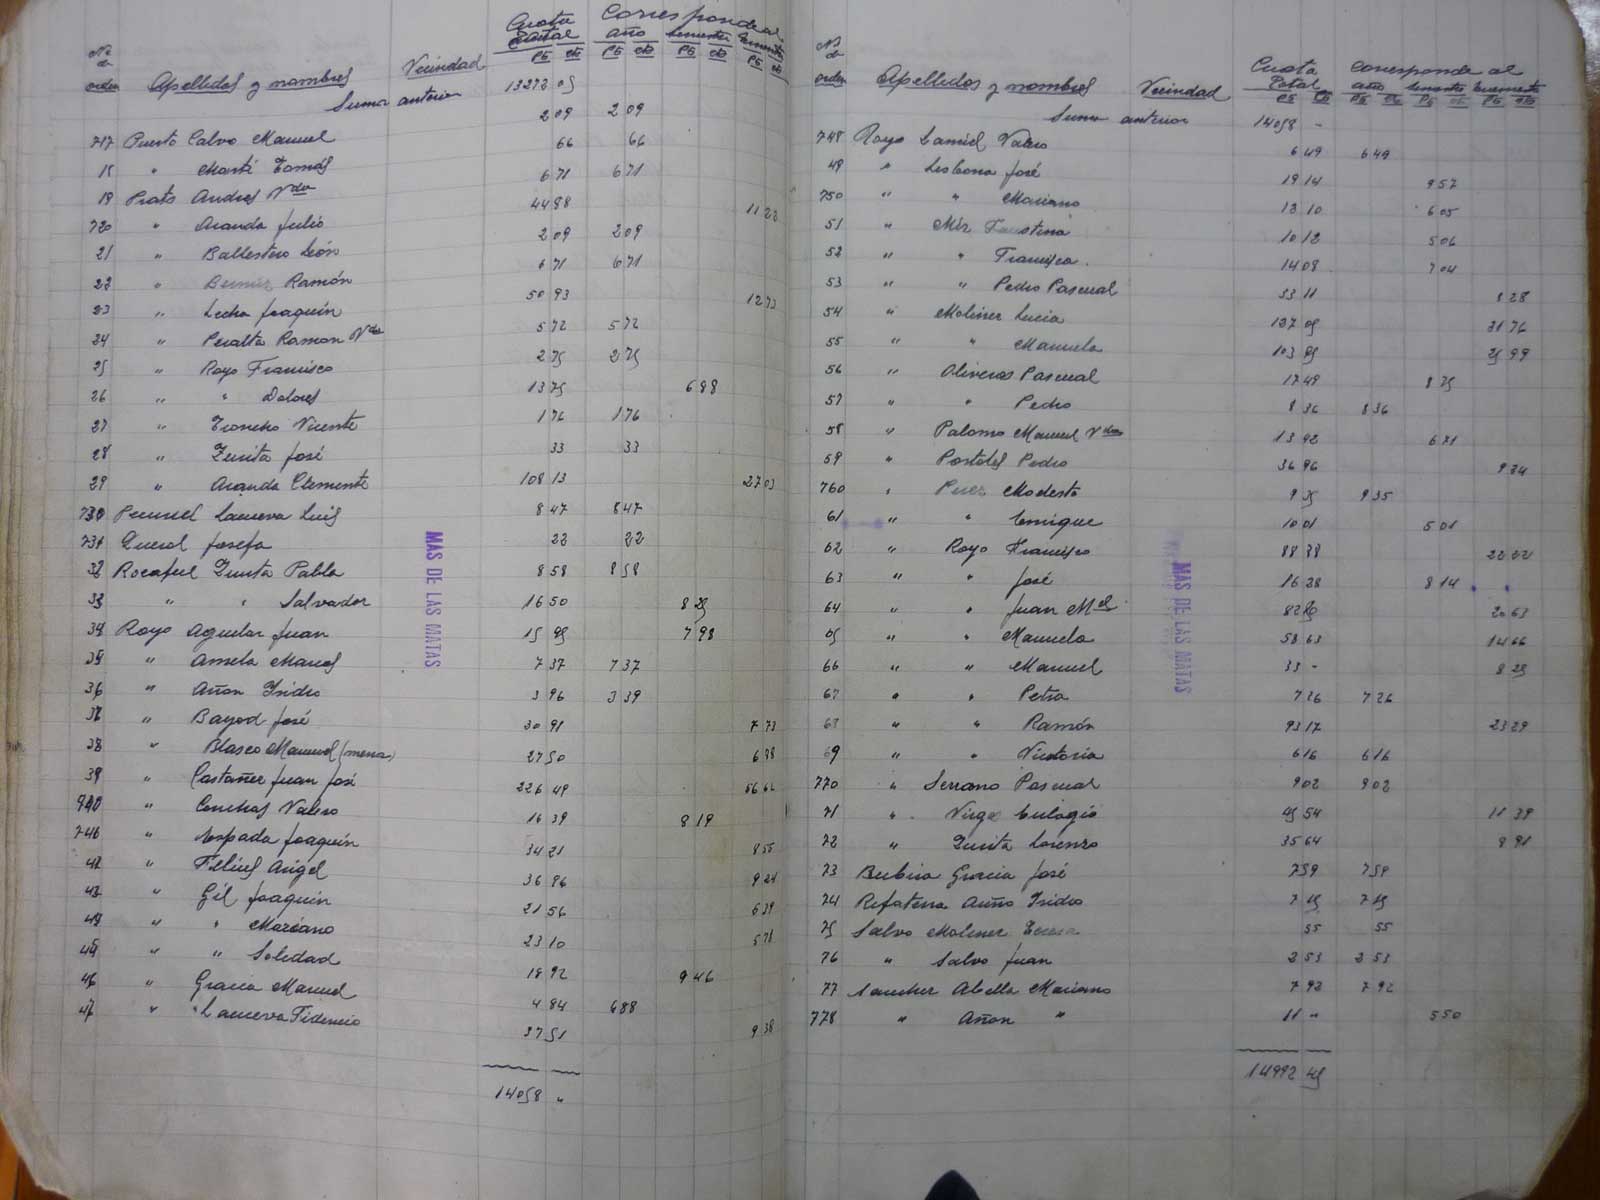 Nº de orden Apellidos y nombres Vecindad Cuota total Corresponde al año semestre trimestre
Pts cts Pts cts Pts cts Pts cts
Suma anterior 13272 05
717 Puerto Calvo Manuel 2 09 2 09
18 " Martí Tomás 66 66
19 Prats Andreu Vda 6 71 6 71
720 " Aranda Julio 44 88 11 22
21 " Ballestero León 2 09 2 09
22 " Ramón 6 71 6 71
23 " Lecha Joaquín 50 93 12 73
24 " Peralta Ramón Vda 5 72 5 72
25 " Royo Francisco 2 75 2 75
26 " " Dolores 13 75 6 88
27 " Troncho Vicente 1 76 1 76
28 " Zurita José 33 33
29 " Aranda Clemente 108 13 27 03
730 Lanueva Luis 8 47 8 47
731 Querol Josefa 22 22
32 Rocafull Zurita Pablo 8 58 8 58
33 " " Salvador 16 50 8 25
34 Royo Aguilar Juan 15 95 7 98
35 " Amela Manuel 7 37 7 37
36 " Añon Isidro 3 96 3 39
37 " Bayod José 30 91 7 73
38 " Blasco Manuel (menor) 27 50 6 88
39 " Castañer Juan José 226 49 56 62
740 " Conchas Valero 16 39 8 19
" Espada Joaquín 34 21 8 55
42 " Angel 36 86 9 21
43 " Gil Joaquín 21 56 5 39
44 " " Mariano 23 10 5 78
45 " " Soledad 18 92 9 46
46 " Gracia Manuel 4 84 6 88
47 " Lanueva Fidencio 37 51 9 38
14058 "
MAS DE LAS MATAS
Nº de orden Apellidos y nombres Vecindad Cuota Total Corresponde al año semestre trimestre
Pts cts Pts cts Pts cts Pts cts
Suma anterior 14058 -
748 Royo Valero 6 49 6 49
49 " Lisbona José 19 14 9 57
750 " " Mariano 12 10 6 05
51 " Mir Faustina 10 12 5 06
52 " " Francisca 14 08 7 04
53 " " Pedro Pascual 33 11 8 28
54 " Moliner Lucia 127 05 31 76
55 " " Manuela 103 95 25 99
56 " Oliveros Pascual 17 49 8 75
57 " " Pedro 8 36 8 36
58 " Palomo Manuel Vda 13 42 6 71
59 " Portolés Pedro 36 96 9 24
760 " Modesto 9 35 9 35
61 " " Enrique 10 01 5 01
62 " Royo Francisco 88 88 22 22
63 " " José 16 28 8 14
64 " " Juan Mel 82 50 20 63
65 " " Manuela 58 63 14 66
66 " " Manuel 33 - 8 25
67 " " Petra 7 26 7 26
68 " " Ramón 93 17 23 29
69 " " Victoria 6 16 6 16
770 " Serrano Pascual 9 02 9 02
71 " Virgos Eulogio 45 54 11 39
72 " Zurita Lorenzo 35 64 8 91
73 Gracia José 7 59 7 59
74 Isidro 7 15 7 15
75 Salvo Moliner Teresa 55 55
76 " Salvo Juan 2 53 2 53
77 Sanchez Abella Mariano 7 92 7 92
778 " Añon " 11 " 5 50
14992 45
MAS DE LAS MATAS